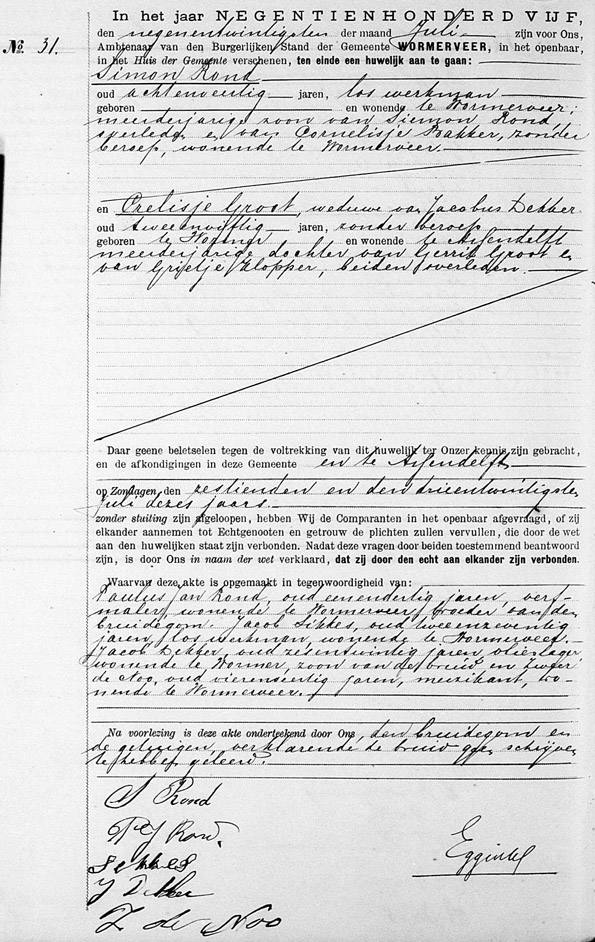 In het jaar NEGENTIENHONDERD VIJF,
den negenentwintigsten der maand Juli zijn voor Ons,
No. 31.
Ambtenaar van den Burgerlijken Stand der Gemeente WORMERVEER, in het openbaar,
in het Huis der Gemeente verschenen, ten einde een huwelijk aan te gaan:
Simon Rond
oud achtenveertig jaren, los werkman
geboren en wonende te Wormerveer,
meerderjarige zoon van Siemon Rond,
overleden en van Cornelisje Bakker, zonder
beroep, wonende te Wormerveer.
en Crelisje Groot, weduwe van Jacobus Dekker
oud tweeenvijftig jaren, zonder beroep
geboren te Wormer en wonende te Assendelft
meerderjarige dochter van Gerrit Groot en
van Grietje Klopper, beiden overleden.
Daar geene beletselen tegen de voltrekking van dit huwelijk ter Onzer kennis zijn gebracht,
en de afkondigingen in deze Gemeente en te Assendelft
op Zondagen den zestienden en den drieentwintigsten
Juli dezes jaars.
zonder stuiting zijn afgeloopen, hebben Wij de Comparanten in het openbaar afgevraagd, of zij
elkander aannemen tot Echtgenooten en getrouw de plichten zullen vervullen, die door de wet
aan den huwelijken staat zijn verbonden. Nadat deze vragen door beiden toestemmend beantwoord
zijn, is door Ons in naam der wet verklaard, dat zij door den echt aan elkander zijn verbonden.
Waarvan deze akte is opgemaakt in tegenwoordigheid van:
Paulus Jan Rond, oud eenendertig jaren, verf-
maler, wonende te Wormerveer, broeder van den
bruidegom. Jacob Sikkes, oud tweeenzeventig
jaren, los werkman, wonende te Wormerveer.
Jacob Dekker, oud zesentwintig jaren, olieslager
wonende te Wormer, zoon van de bruid en
de Noo, oud vierensestig jaren, muzikant, wo-
nende te Wormerveer.
Na voorlezing is deze akte onderteekend door Ons, den bruidegom en
de getuigen, verklarende de bruid geen schrijven
te hebben geleerd.
S Rond
P J Rond.
J Dekker
Z de Noo